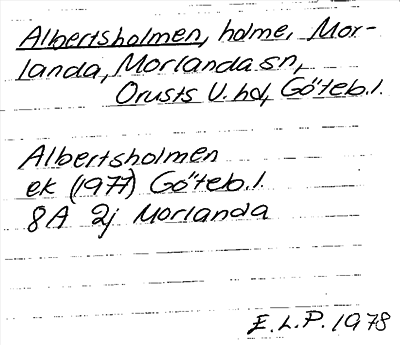 Albertsholmen, holme, Mor-
landa, Morlanda sn,
Orusts V. hd, Göteb. l.
Albertsholmen
ek (1977) Göteb. l.
8A 2j Morlanda
E. L. P. 1978